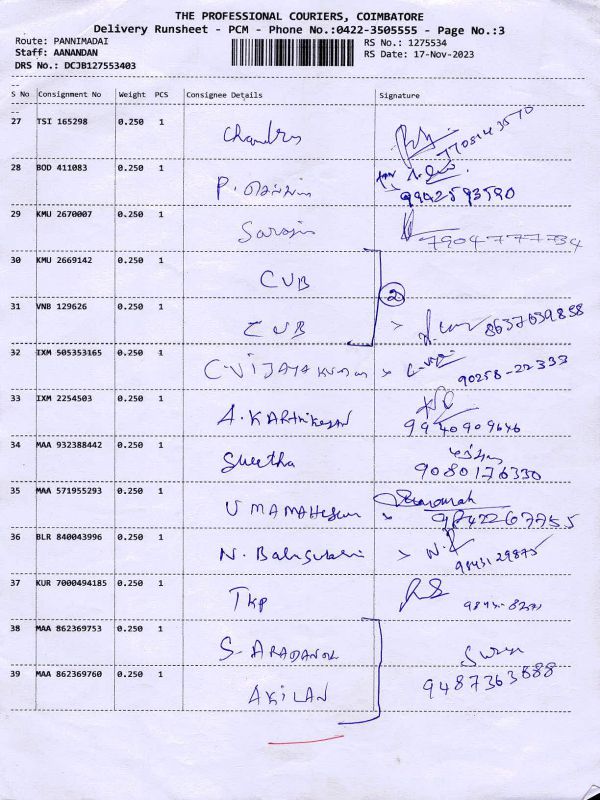 THE PROFESSIONAL COURIERS, COIMBATORE
Delivery Runsheet - PCM - Phone No.:0422-3505555 - Page No.:3
Route: PANNIMADAI RS No.: 1275534
Staff: AANANDAN RS Date: 17-Nov-2023
DRS No.: DCJB127553403
S No Consignment No Weight PCS Consignee Details Signature
27 TSI 165298 0.250 1 Chandra
28 BOD 411083 0.250 1 9942593590
29 KMU 2670007 0.250 1 Saroja 7904777734
30 KMU 2669142 0.250 1 CUB
2
31 VNB 129626 0.250 1 CUB 8637659858
32 IXM 505353165 0.250 1 C.VIJAYAKUMAR 90258-22333
33 IXM 2254503 0.250 1 A.KARTHIKEYAN 9940909646
34 MAA 932388442 0.250 1 Swetha 9080176330
35 MAA 571955293 0.250 1 UMAMAHESWARI 9842267755
36 BLR 840043996 0.250 1 N. 9843129875
37 KUR 7000494185 0.250 1 TKP
38 MAA 862369753 0.250 1 S.
39 MAA 862369760 0.250 1 AKILAN 9487363888